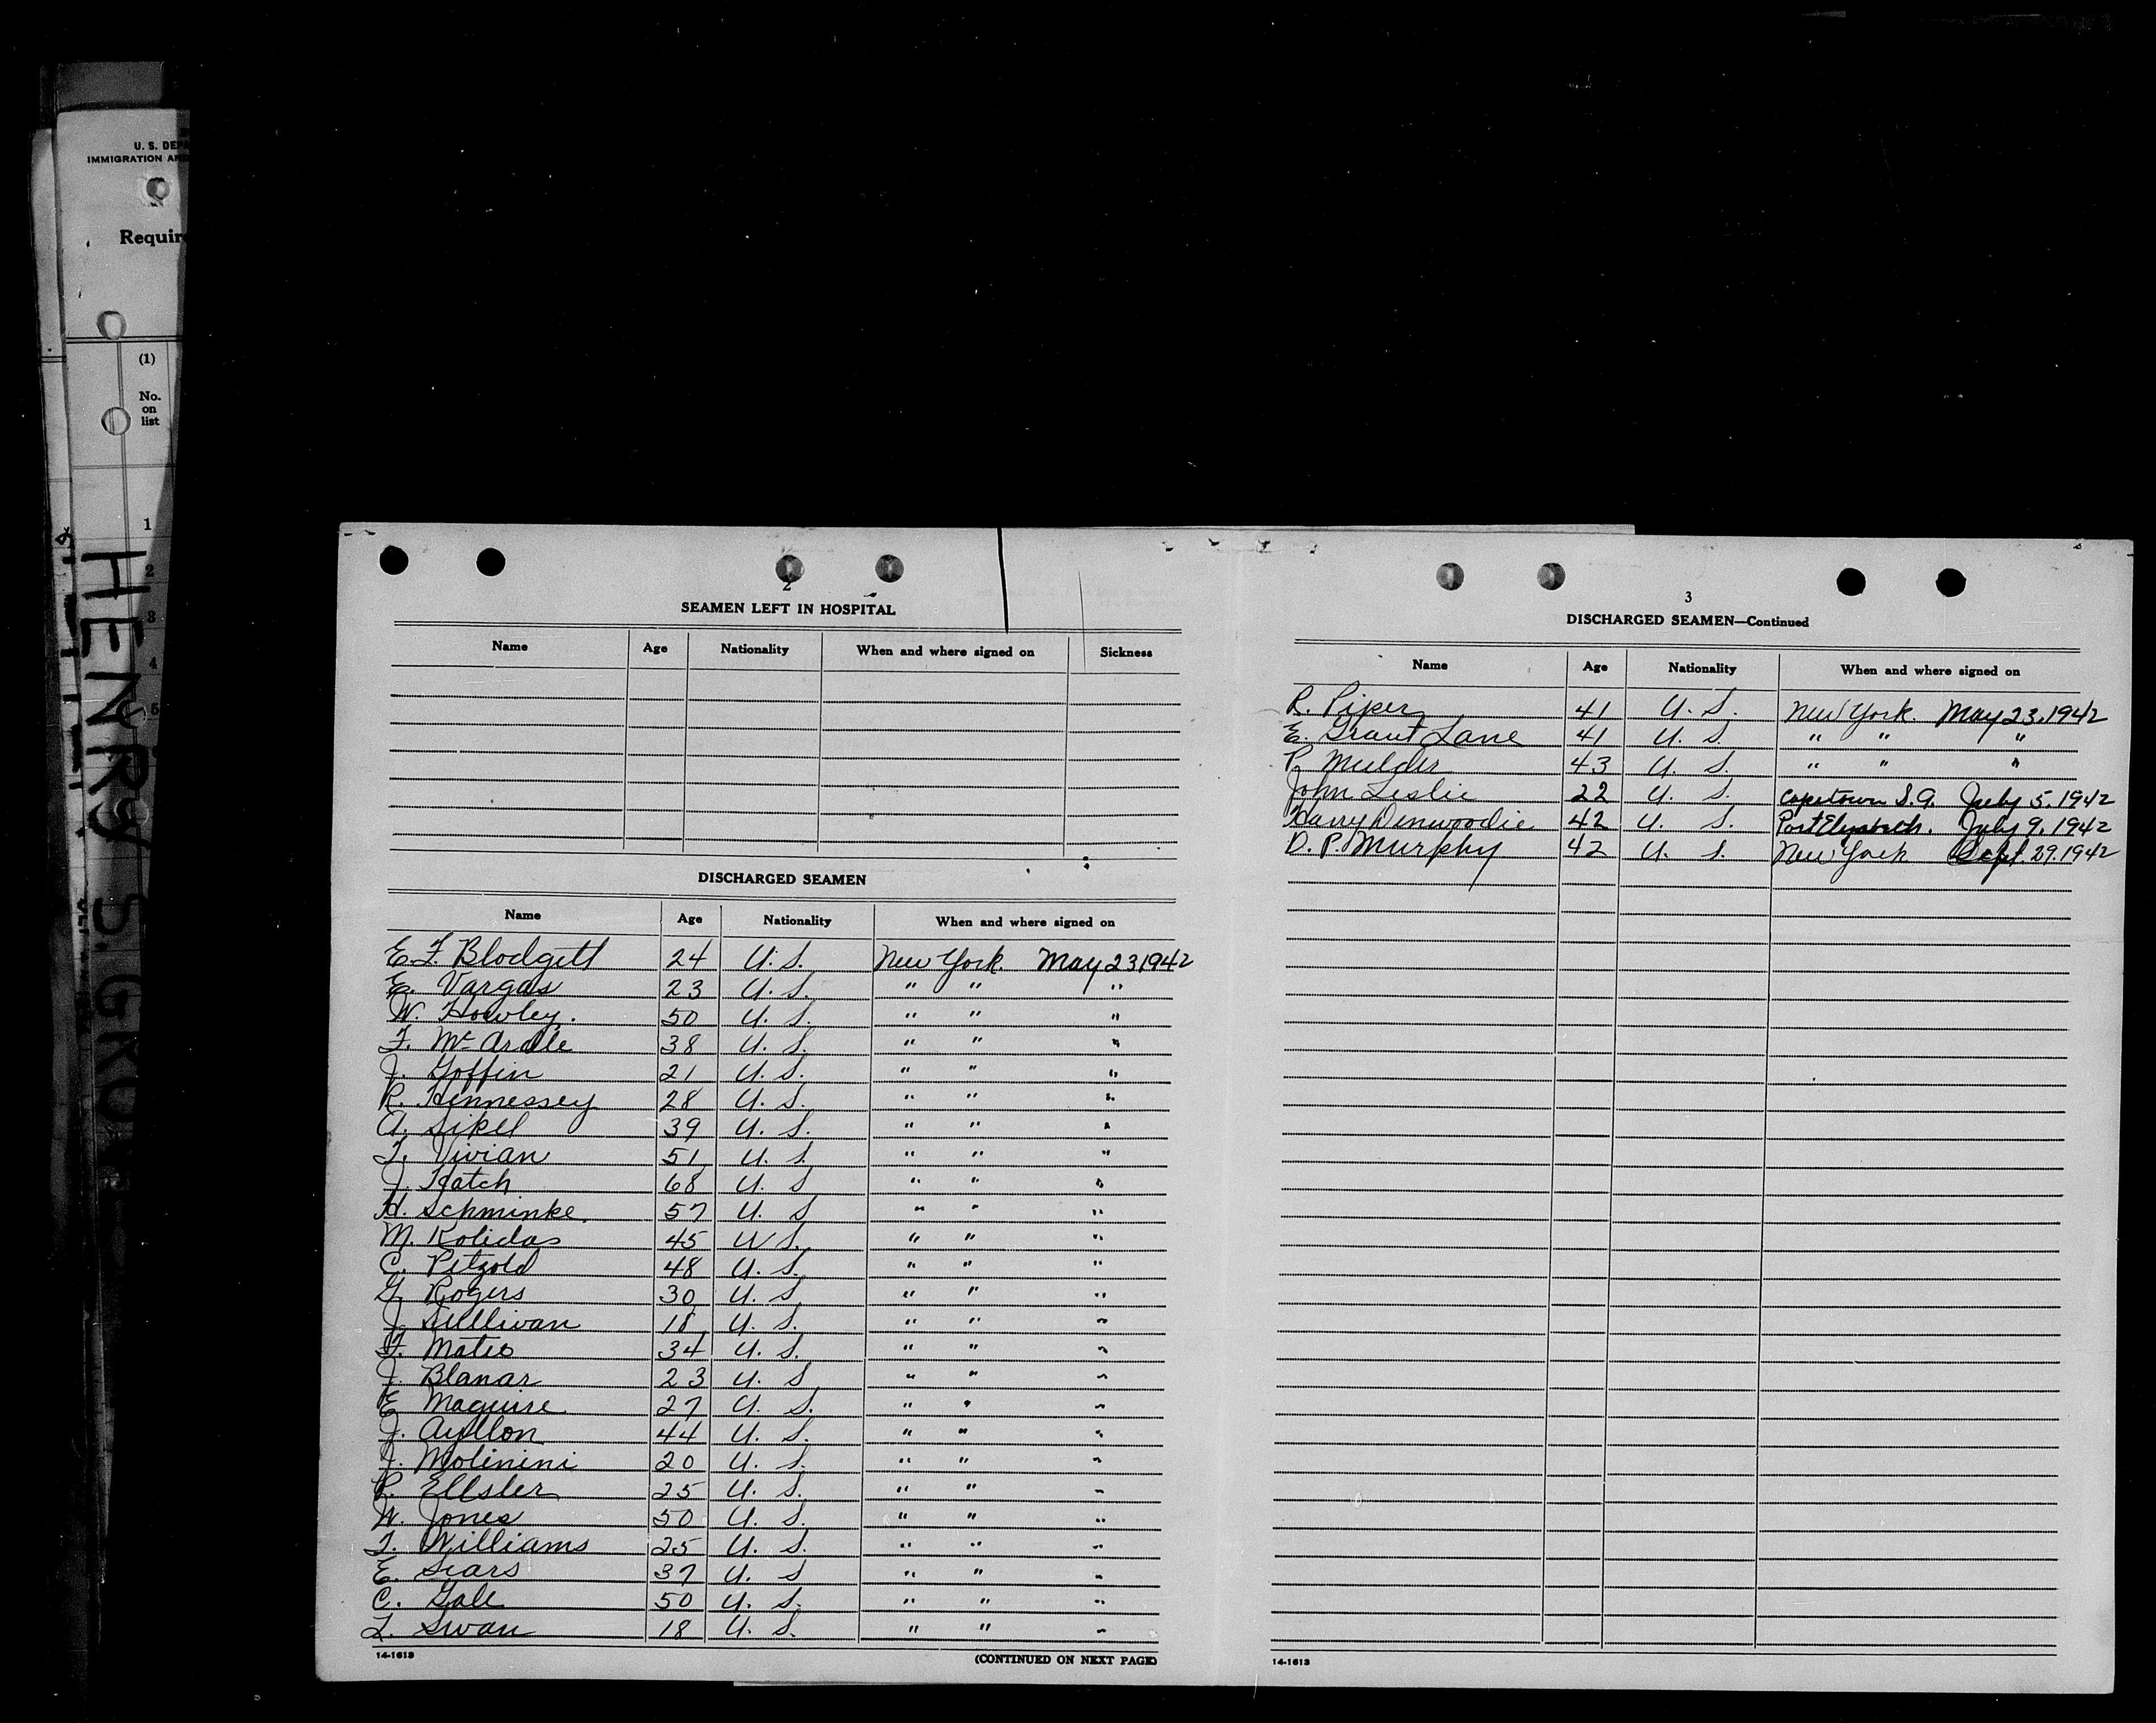 U. S. DEP
IMMIGRATION AN
Requir
(1)
No.
on
list
1
2
3
4
5
HENRY S. GROV
2
SEAMEN LEFT IN HOSPITAL
Name Age Nationality When and where signed on Sickness
DISCHARGED SEAMEN
Name Age Nationality When and where signed on
E. F. Blodgett 24 U. S. New York. May 23 1942
E. Vargas 23 U. S. " " "
W. Howley. 50 U. S. " " "
F. Mc Ardle 38 U. S. " " "
J. Goffin 21 U. S. " " "
R. Hennessey 28 U. S. " " "
A. Sikel 39 U. S. " " "
T. Vivian 51 U. S. " " "
J. Hatch 68 U. S " " "
H. Schminke. 57 U. S " " "
M. Kolidas 45 U S. " " "
C. Petzold 48 U. S. " " "
G. Rogers 30 U. S " " "
J. Sullivan 18 U. S. " " "
F. Mateo 34 U. S. " " "
J. Blanar 23 U. S " " "
E. Maguire 27 U. S. " " "
J. Ayllon 44 U. S. " " "
J. Molinini 20 U. S. " " "
R. Ellsler 25 U. S. " " "
W. Jones 50 U. S. " " "
T. Williams 25 U. S. " " "
E. Sears 37 U. S " " "
C. Gale 50 U. S. " " "
L. Swan 18 U. S. " " "
14-1613 (CONTINUED ON NEXT PAGE)
3
DISCHARGED SEAMEN—Continued
Name Age Nationality When and where signed on
R. Piper 41 U. S. New York. May 23. 1942
E. Grant Lane 41 U. S. " " "
P. Mulder 43 U. S. " " "
John Leslie 22 U. S. Capetown S.A. July 5. 1942
Harry Dinwoodie 42 U. S. Port Elizabeth. July 9. 1942
D. P. Murphy 42 U. S. New York Sept 29. 1942
14-1613